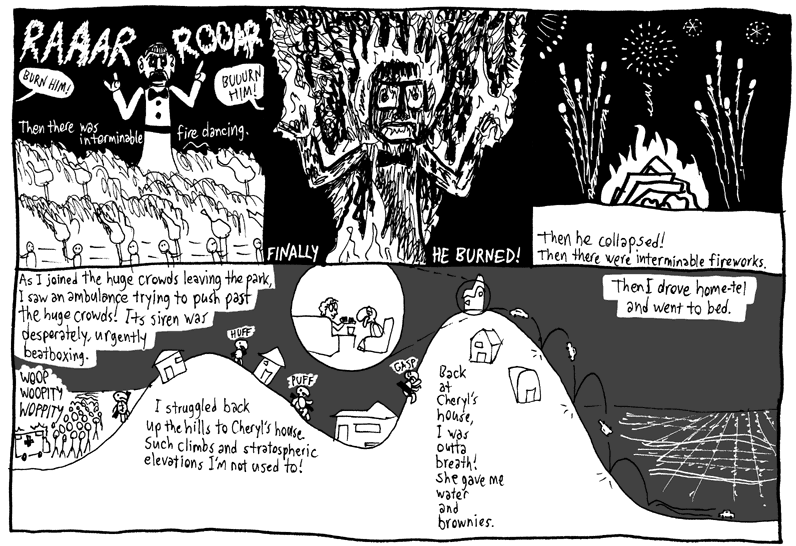 RAAAR ROOAR
BURN HIM!
BUUURN
HIM!
Then there was
interminable fire dancing.
FINALLY HE BURNED!
Then he collapsed!
Then there were interminable fireworks.
As I joined the huge crowds leaving the park,
I saw an ambulance trying to push past
the huge crowds! Its siren was
desperately, urgently
beatboxing.
WOOP
WOOPITY
WOPPITY
HUFF
PUFF
GASP
I struggled back
up the hills to Cheryl's house.
Such climbs and stratospheric
elevations I'm not used to!
Back
at
Cheryl's
house,
I was
outta
breath!
She gave me
water
and
brownies.
Then I drove home-tel
and went to bed.